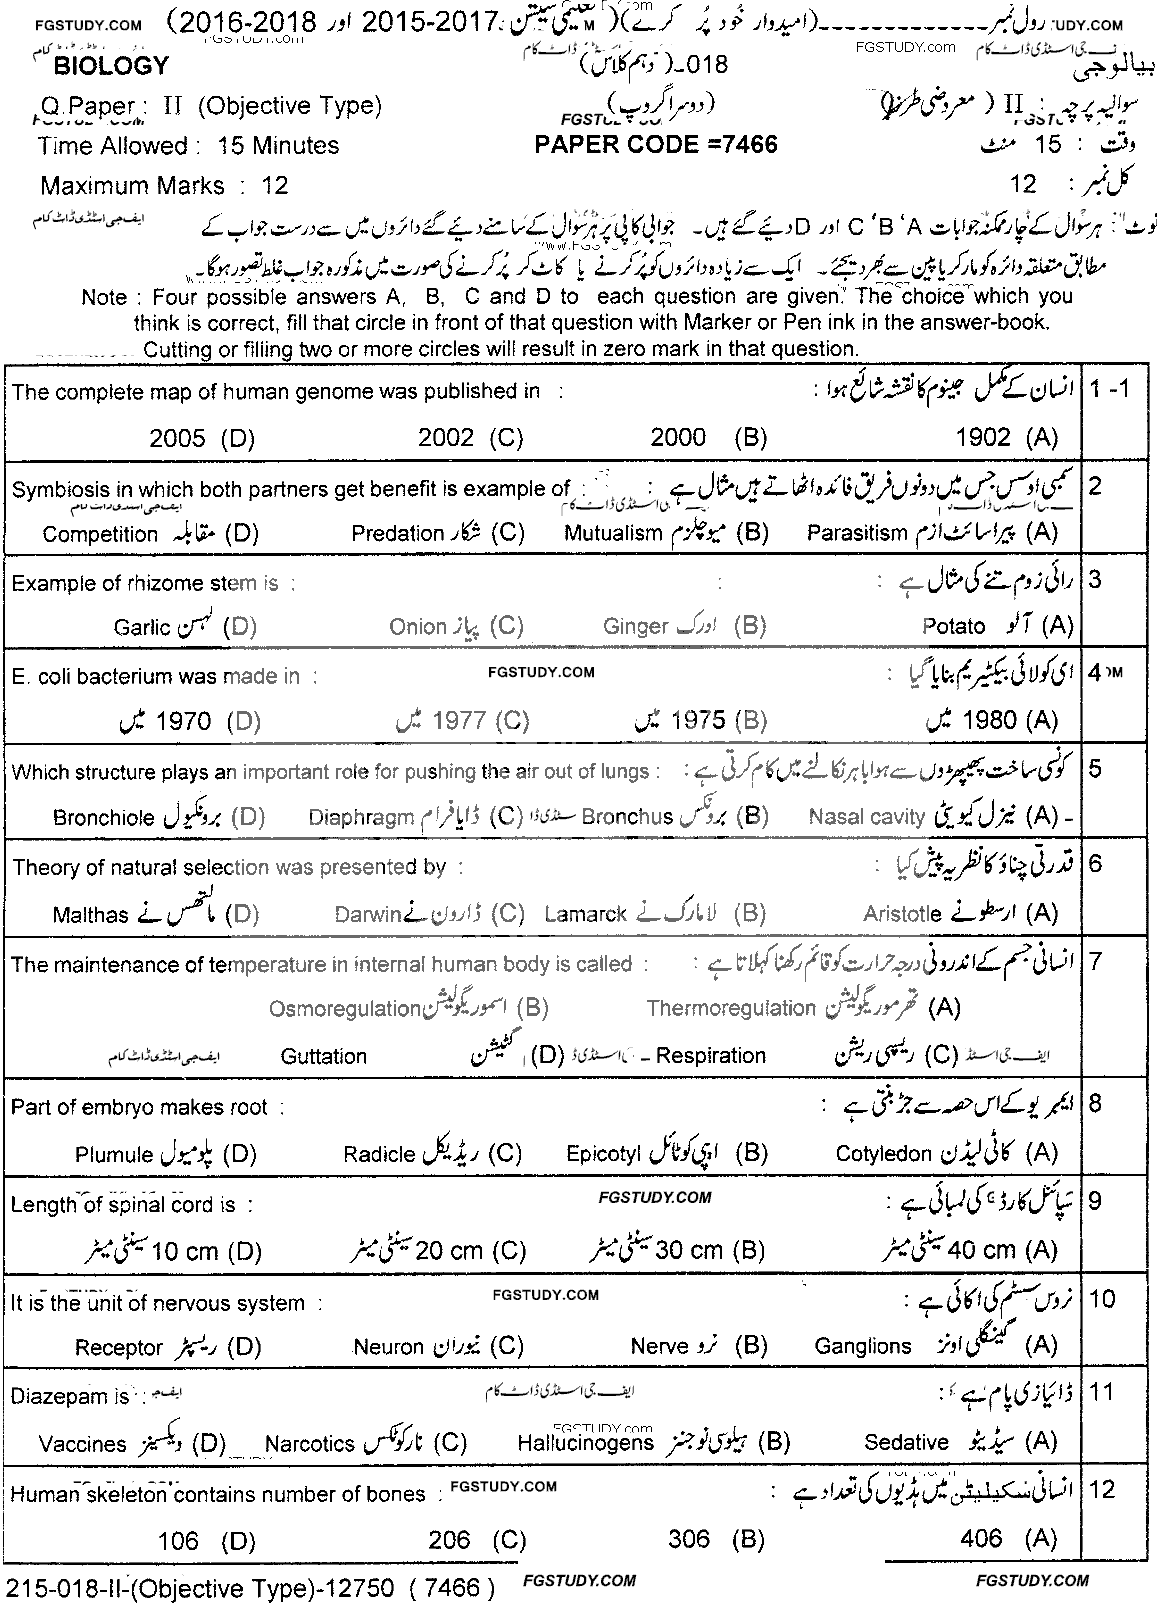 FGSTUDY.COM رول نمبر-------------(امیدوار خود پُر کرے)(تعلیمی سیشن 2015-2017 اور 2016-2018) FGSTUDY.COM
BIOLOGY 018-(دہم کلاس) بیالوجی
Q.Paper : II (Objective Type) (دوسرا گروپ) سوالیہ پرچہ : II (معروضی طرز)
Time Allowed : 15 Minutes PAPER CODE =7466 وقت : 15 منٹ
Maximum Marks : 12 کل نمبر : 12
نوٹ : ہر سوال کے چار ممکنہ جوابات A، B، C اور D دیئے گئے ہیں۔ جوابی کاپی پر ہر سوال کے سامنے دیئے گئے دائروں میں سے درست جواب کے ایف جی اسٹڈی ڈاٹ کام
مطابق متعلقہ دائرہ کو مارکر یا پین سے بھر دیجئے۔ ایک سے زیادہ دائروں کو پُر کرنے یا کاٹ کر پُر کرنے کی صورت میں مذکورہ جواب غلط تصور ہوگا۔
Note : Four possible answers A, B, C and D to each question are given. The choice which you
think is correct, fill that circle in front of that question with Marker or Pen ink in the answer-book.
Cutting or filling two or more circles will result in zero mark in that question.
The complete map of human genome was published in : انسان کے مکمل جینوم کا نقشہ شائع ہوا : 1 -1
2005 (D) 2002 (C) 2000 (B) 1902 (A)
Symbiosis in which both partners get benefit is example of : سمبی اوسس جس میں دونوں فریق فائدہ اٹھاتے ہیں مثال ہے : 2
Competition مقابلہ (D) Predation شکار (C) Mutualism میوچلزم (B) Parasitism پیراسائٹ ازم (A)
Example of rhizome stem is : رائی زوم تنے کی مثال ہے : 3
Garlic لہسن (D) Onion پیاز (C) Ginger ادرک (B) Potato آلو (A)
E. coli bacterium was made in : FGSTUDY.COM ای کولائی بیکٹیریم بنایا گیا : 4
1970 میں (D) 1977 میں (C) 1975 میں (B) 1980 میں (A)
Which structure plays an important role for pushing the air out of lungs : کونسی ساخت پھیپھڑوں سے ہوا باہر نکالنے میں کام کرتی ہے : 5
Bronchiole برونکیول (D) Diaphragm ڈایافرام (C) Bronchus برونکس (B) Nasal cavity نیزل کیویٹی (A)
Theory of natural selection was presented by : قدرتی چناؤ کا نظریہ پیش کیا : 6
Malthas مالتھس نے (D) Darwin ڈارون نے (C) Lamarck لامارک نے (B) Aristotle ارسطو نے (A)
The maintenance of temperature in internal human body is called : انسانی جسم کے اندرونی درجہ حرارت کو قائم رکھنا کہلاتا ہے : 7
Osmoregulation اسموریگولیشن (B) Thermoregulation تھرموریگولیشن (A)
ایف جی اسٹڈی ڈاٹ کام Guttation گٹیشن (D) Respiration ریسپی ریشن (C)
Part of embryo makes root : ایمبریو کے اس حصہ سے جڑ بنتی ہے : 8
Plumule پلومیول (D) Radicle ریڈیکل (C) Epicotyl ایپی کوٹائل (B) Cotyledon کاٹی لیڈن (A)
Length of spinal cord is : FGSTUDY.COM سپائنل کارڈ کی لمبائی ہے : 9
10 cm سینٹی میٹر (D) 20 cm سینٹی میٹر (C) 30 cm سینٹی میٹر (B) 40 cm سینٹی میٹر (A)
It is the unit of nervous system : FGSTUDY.COM نروس سسٹم کی اکائی ہے : 10
Receptor ریسپٹر (D) Neuron نیوران (C) Nerve نرو (B) Ganglions گینگلی اونز (A)
Diazepam is : ایف جی اسٹڈی ڈاٹ کام ڈائیازی پام ہے : 11
Vaccines ویکسینز (D) Narcotics نارکوٹکس (C) Hallucinogens ہیلوسی نوجنز (B) Sedative سیڈیٹو (A)
Human skeleton contains number of bones : FGSTUDY.COM انسانی سکیلیٹن میں ہڈیوں کی تعداد ہے : 12
106 (D) 206 (C) 306 (B) 406 (A)
215-018-II-(Objective Type)-12750 ( 7466 ) FGSTUDY.COM FGSTUDY.COM